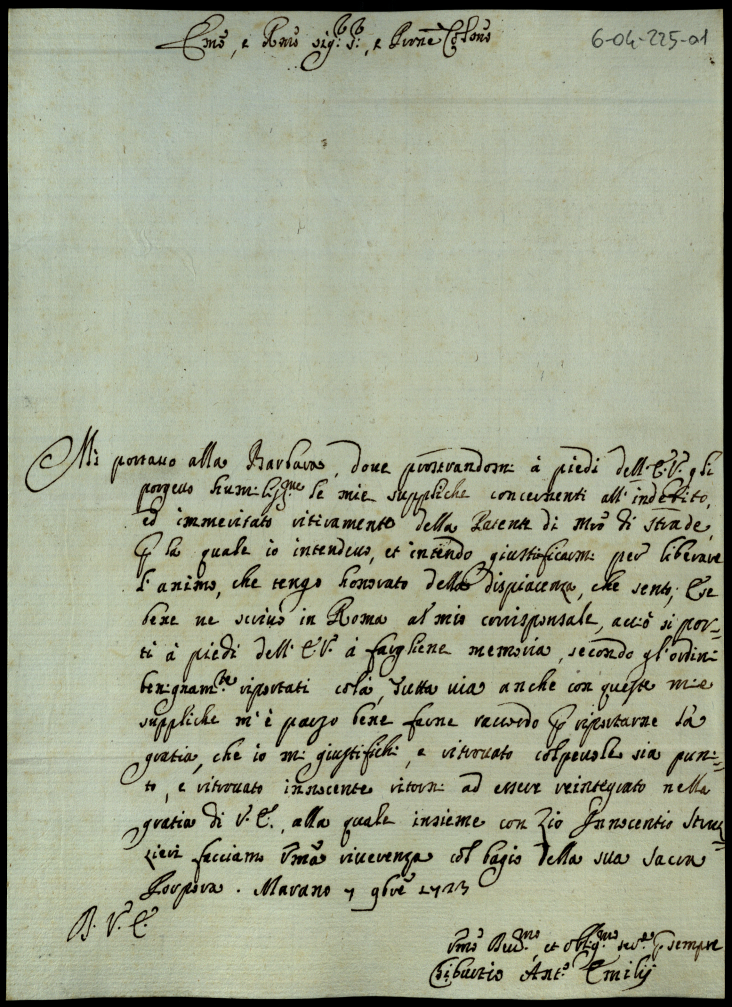 Em̃o, e Rm̃o sig:r S:r, e Prone Col:mo
6-04-225-01
Mi portauo alla Barbara, doue prostrandomi à piedi dell'E.V. gli
porgeuo humiliss.me le mie suppliche concernenti all'indebito,
ed immeritato ritiramento della Patente di Mro di strade,
p la quale io intendeuo, et intendo giustificarmi per liberare
l'animo, che tengo honorato della dispiacenza, che sento; E se
bene ne scriuo in Roma al mio corrisponsale, acciò si por-
ti à piedi dell'E.V. à fargliene memoria, secondo gl'ordini
benignam.te riportati colà, Tutta uia anche con queste mie
suppliche m'è parso bene farne raccordo p riportarne la
gratia, che io mi giustifichi, e ritrouato colpeuole sia puni-
to, e ritrouato innocente ritorni ad essere reintegrato nella
gratia di V.E., alla quale insieme con Zio Innocentio Struz-
zieri facciamo vm̃a riuerenza col bagio della sua sacra
Porpora. Marano 7 9bre 1723
B. V. E.
Vmo Deu.mo, et oblig.mo ser.e p sempre
Tiburtio Ant.o Emilij